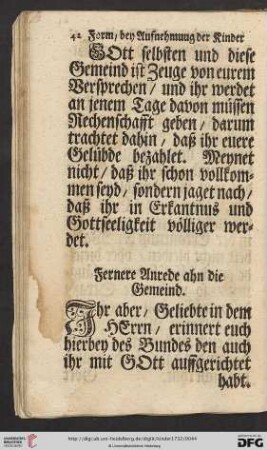 42 Form/ bey Aufnehmung der Kinder
GOtt selbsten und diese
Gemeind ist Zeuge von eurem
Versprechen/ und ihr werdet
an jenem Tage davon müssen
Rechenschafft geben/ darum
trachtet dahin/ daß ihr euere
Gelübde bezahlet. Meynet
nicht/ daß ihr schon vollkom-
men seyd/ sondern jaget nach/
daß ihr in Erkantnus und
Gottseeligkeit völliger wer-
det.
Fernere Anrede ahn die
Gemeind.
Ihr aber/ Geliebte in dem
HErrn/ erinnert euch
hierbey des Bundes den auch
ihr mit GOtt auffgerichtet
habt.
http://digi.ub.uni-heidelberg.de/diglit/kinder1732/0044
© Universitätsbibliothek Heidelberg
gefördert durch die
DFG